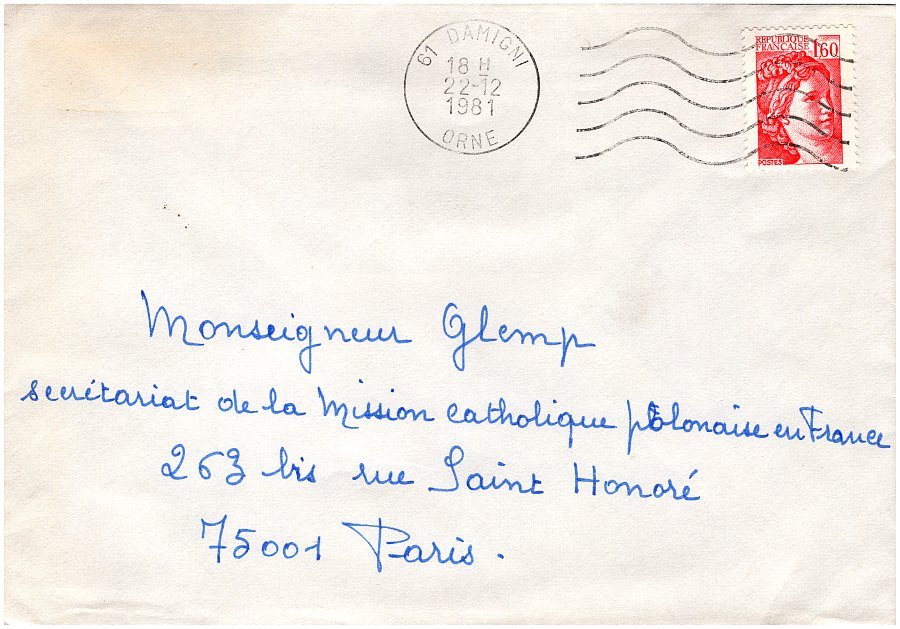 61 DAMIGNI
18 H
22-12
1981
ORNE
REPUBLIQUE
FRANÇAISE 1,60
POSTES
Monseigneur Glemp
secrétariat de la Mission catholique polonaise en France
263 bis rue Saint Honoré
75001 Paris.